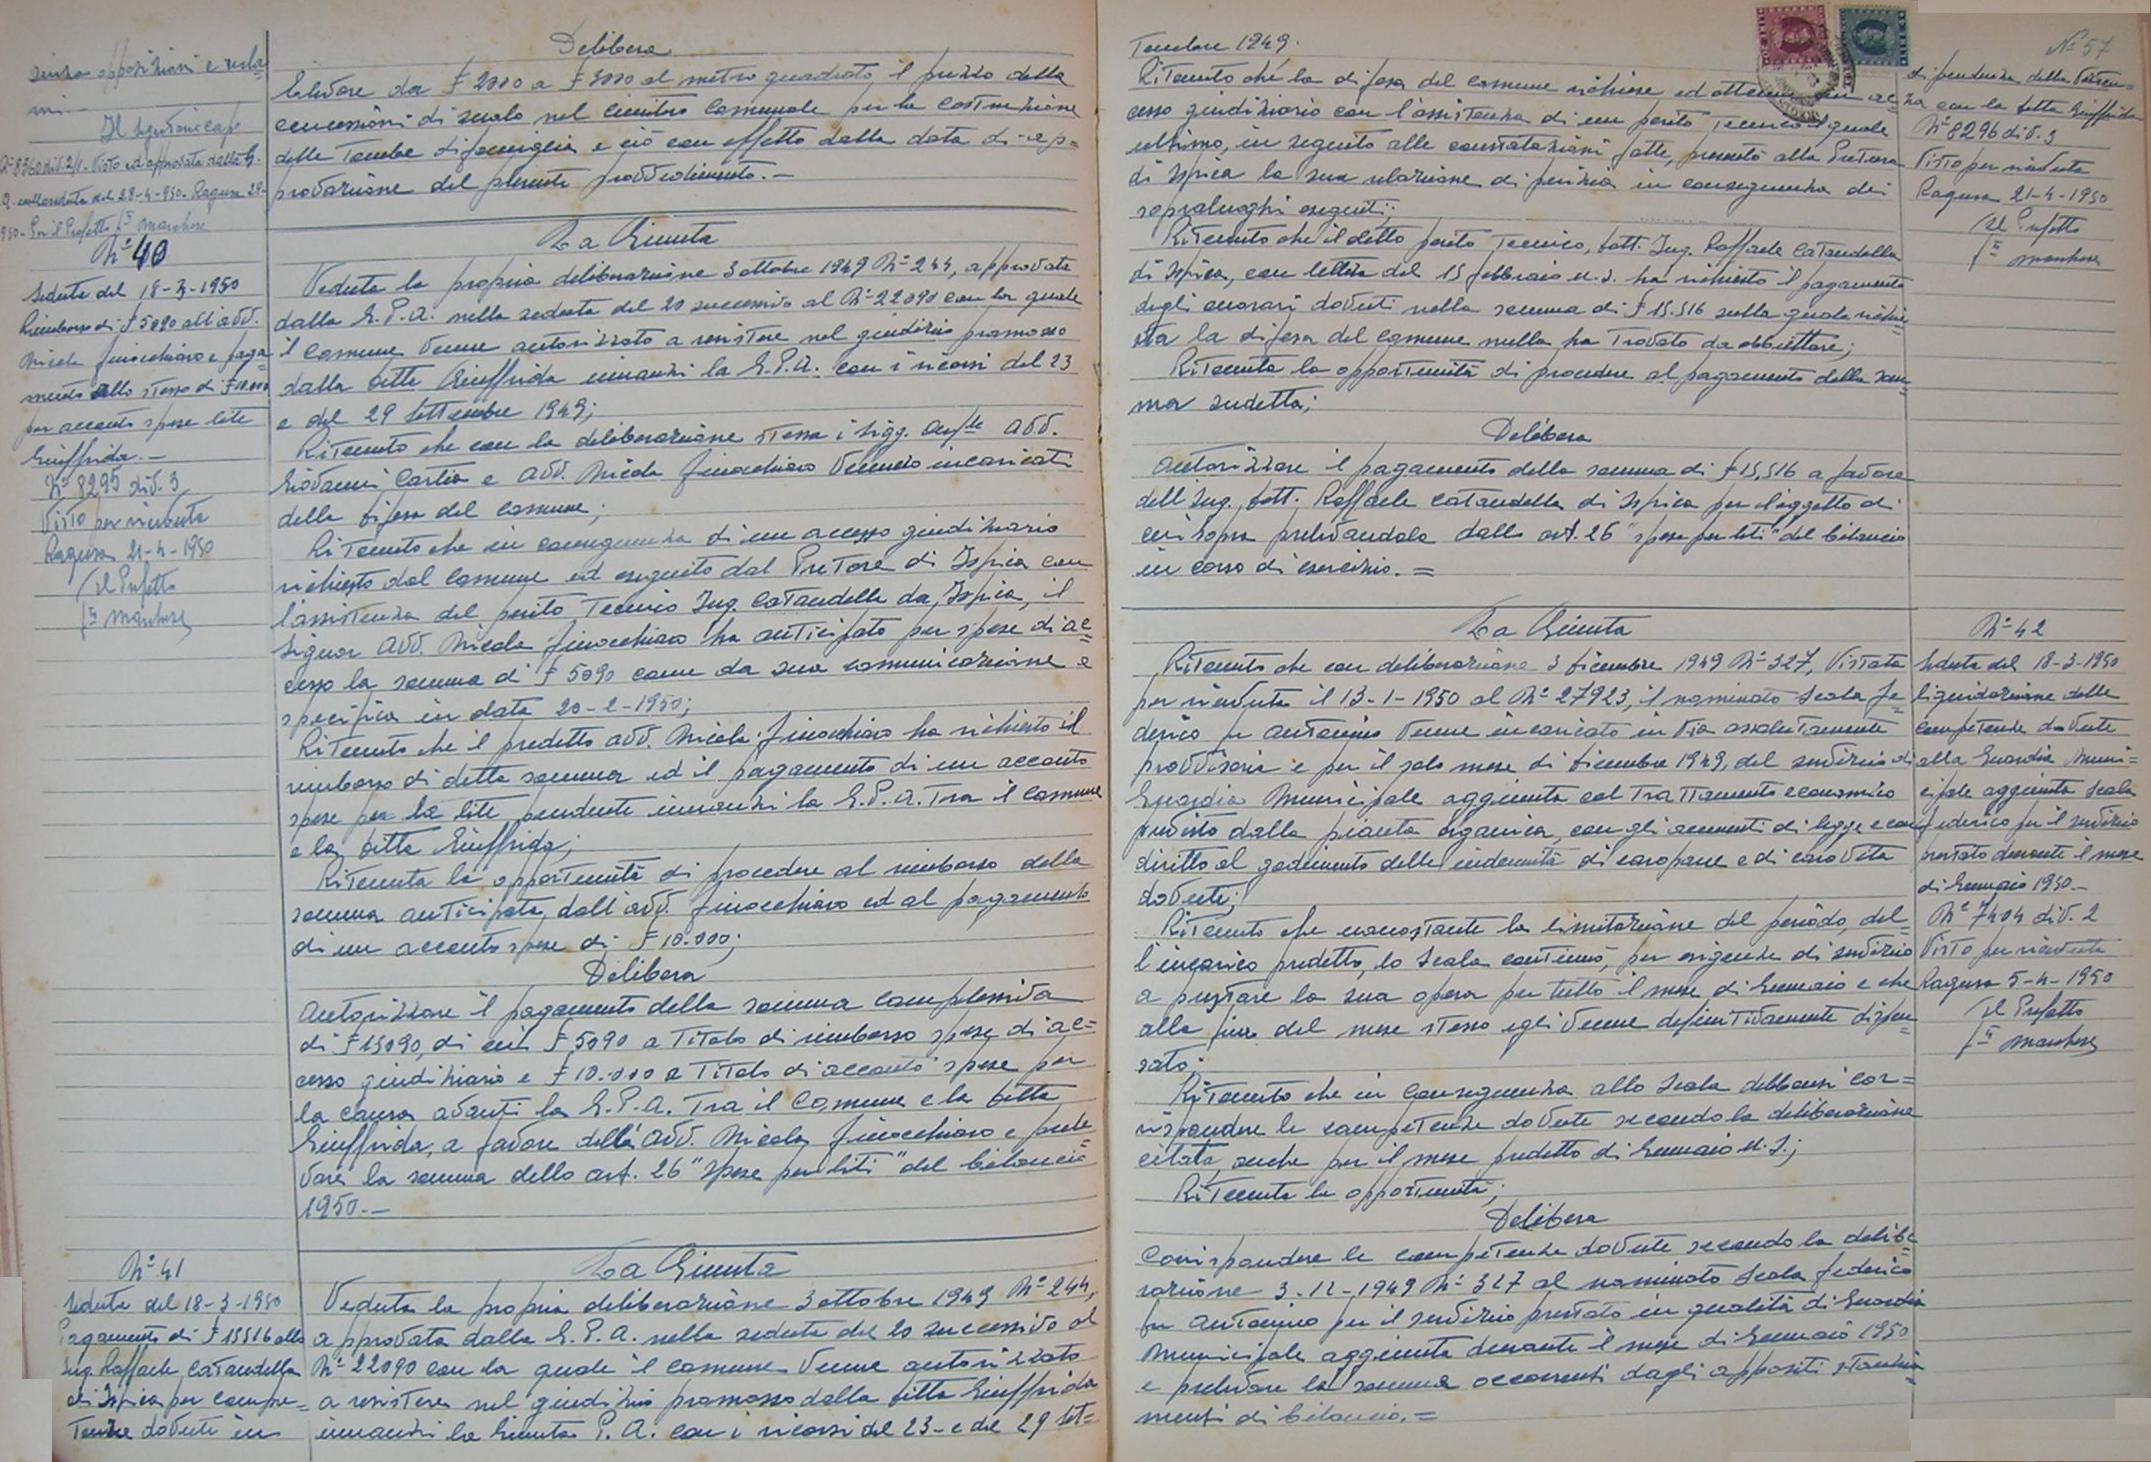 senza opposizioni e recla=
mi.
Il Segretario Capo
N° 8360 div. 2/1. Visto ed approvato dalla G.
P.A. nella seduta del 28-4-950. Ragusa 29-
950 - Per il Prefetto f.to Marchese
Delibera
Elevare da £ 2000 a £ 3000 al metro quadrato il prezzo della
concessioni di suolo nel cimitero Comunale per la costruzione
delle Tombe di famiglia e ciò con effetto dalla data di ap=
provazione del presente provvedimento.-
N° 40
Seduta del 18-3-1950
Rimborso di £ 5090 all'avv.
Nicola Finocchiaro e paga=
mento allo stesso di £ 10.000
per acconto spese lite
Giuffrida.-
N° 8295 div. 3
Visto per ricevuta
Ragusa 21-4-1950
Il Prefetto
f.to Marchese
La Giunta
Veduta la propria deliberazione 3 ottobre 1949 N° 244, approvata
dalla G.P.A. nella seduta del 20 successivo al N° 22090 con la quale
il Comune venne autorizzato a resistere nel giudizio promosso
dalla Ditta Giuffrida innanzi la G.P.A. con i ricorsi del 23
e del 29 Settembre 1949;
Ritenuto che con la deliberazione stessa i Sigg. Avv.
Giovanni Cartia e Avv. Nicola Finocchiaro vennero incaricati
della difesa del Comune;
Ritenuto che in conseguenza di un accesso giudiziario
richiesto dal Comune ed eseguito dal Pretore di Ispica con
l'assistenza del perito Tecnico Ing. Cataudella da Ispica, il
Signor Avv. Nicola Finocchiaro ha anticipato per spese di ac=
cesso la somma di £ 5090 come da sua comunicazione e
specifica in data 20-2-1950;
Ritenuto che il predetto avv. Nicola Finocchiaro ha richiesto il
rimborso di detta somma ed il pagamento di un acconto
spese per la lite pendente innanzi la G.P.A. Tra il Comune
e la Ditta Giuffrida;
Ritenuta la opportunità di procedere al rimborso della
somma anticipata dall'avv. Finocchiaro ed al pagamento
di un acconto spese di £ 10.000;
Delibera
Autorizzare il pagamento della somma complessiva
di £ 15090, di cui £ 5090 a Titolo di rimborso spese di ac=
cesso giudiziario e £ 10.000 a Titolo di acconto spese per
la causa avanti la G.P.A. Tra il Comune e la Ditta
Giuffrida, a favore dell'avv. Nicola Finocchiaro e prele=
vare la somma dallo art. 26 "Spese per liti" del bilancio
1950.-
N° 41
Seduta del 18-3-1950
Pagamento di £ 15516 allo
Ing. Raffaele Cataudella
di Ispica per compe=
Tenze dovute in
La Giunta
Veduta la propria deliberazione 3 ottobre 1949 N° 244,
approvata dalla G.P.A. nella seduta del 20 successivo al
N° 22090 con la quale il Comune venne autorizzato
a resistere nel giudizio promosso dalla Ditta Giuffrida
innanzi la Giunta P.A. con i ricorsi del 23 - e del 29 Set=
N° 57
Tembre 1949.
Ritenuto che la difesa del Comune richiese ed ottenne un ac=
cesso giudiziario con l'assistenza di un perito Tecnico il quale
ultimo, in seguito alle constatazioni fatte, presentò alla Pretura
di Ispica la sua relazione di perizia in conseguenza dei
sopraluoghi eseguiti;
Ritenuto che il detto perito Tecnico, Dott. Ing. Raffaele Cataudella
di Ispica, con lettera del 15 febbraio u.s. ha richiesto il pagamento
degli onorari dovuti nella somma di £ 15.516 sulla quale richie=
sta la difesa del Comune nulla ha Trovato da obbiettare;
Ritenuta la opportunità di procedere al pagamento della som=
ma sudetta;
Delibera
Autorizzare il pagamento della somma di £ 15.516 a favore
dell'Ing. Dott. Raffaele Cataudella di Ispica per l'oggetto di
cui sopra prelevandola dallo art. 26 "spese per liti" del bilancio
in corso di esercizio.=
dipendenza della verten=
za con la Ditta Giuffrida
N° 8296 div. 3
Visto per ricevuta
Ragusa 21-4-1950
Il Prefetto
f.to Marchese
La Giunta
Ritenuto che con deliberazione 3 Dicembre 1949 N° 327, Vistata
per ricevuta il 13-1-1950 al N° 27923, il nominato Scala Fe=
derico fu Antonino venne incaricato in via assolutamente
provvisoria e per il solo mese di Dicembre 1949, del servizio di
Guardia Municipale aggiunta col Trattamento economico
previsto dalla pianta organica, con gli aumenti di legge e con
diritto al godimento delle indennità di caropane e di carovita
dovute;
Ritenuto che nonostante la limitazione del periodo del=
l'incarico predetto, lo Scala continuò, per esigenze di servizio
a prestare la sua opera per tutto il mese di Gennaio e che
alla fine del mese stesso egli venne definitivamente dispen=
sato.
Ritenuto che in conseguenza allo Scala debbonsi cor=
rispondere le competenze dovute secondo la deliberazione
citata, anche per il mese predetto di Gennaio u.s.;
Ritenuta la opportunità;
Delibera
Corrispondere le competenze dovute secondo la delibe=
razione 3-12-1949 N° 327 al nominato Scala Federico
fu Antonino per il servizio prestato in qualità di Guardia
Municipale aggiunta durante il mese di Gennaio 1950
e prelevare la somma occorrenti dagli appositi stanzia=
menti di bilancio.=
N° 42
Seduta del 18-3-1950
Liquidazione delle
competenze dovute
alla Guardia Muni=
cipale aggiunta Scala
Federico per il servizio
prestato durante il mese
di Gennaio 1950.-
N° 7404 div. 2
Visto per ricevuta
Ragusa 5-4-1950
Il Prefetto
f.to Marchese